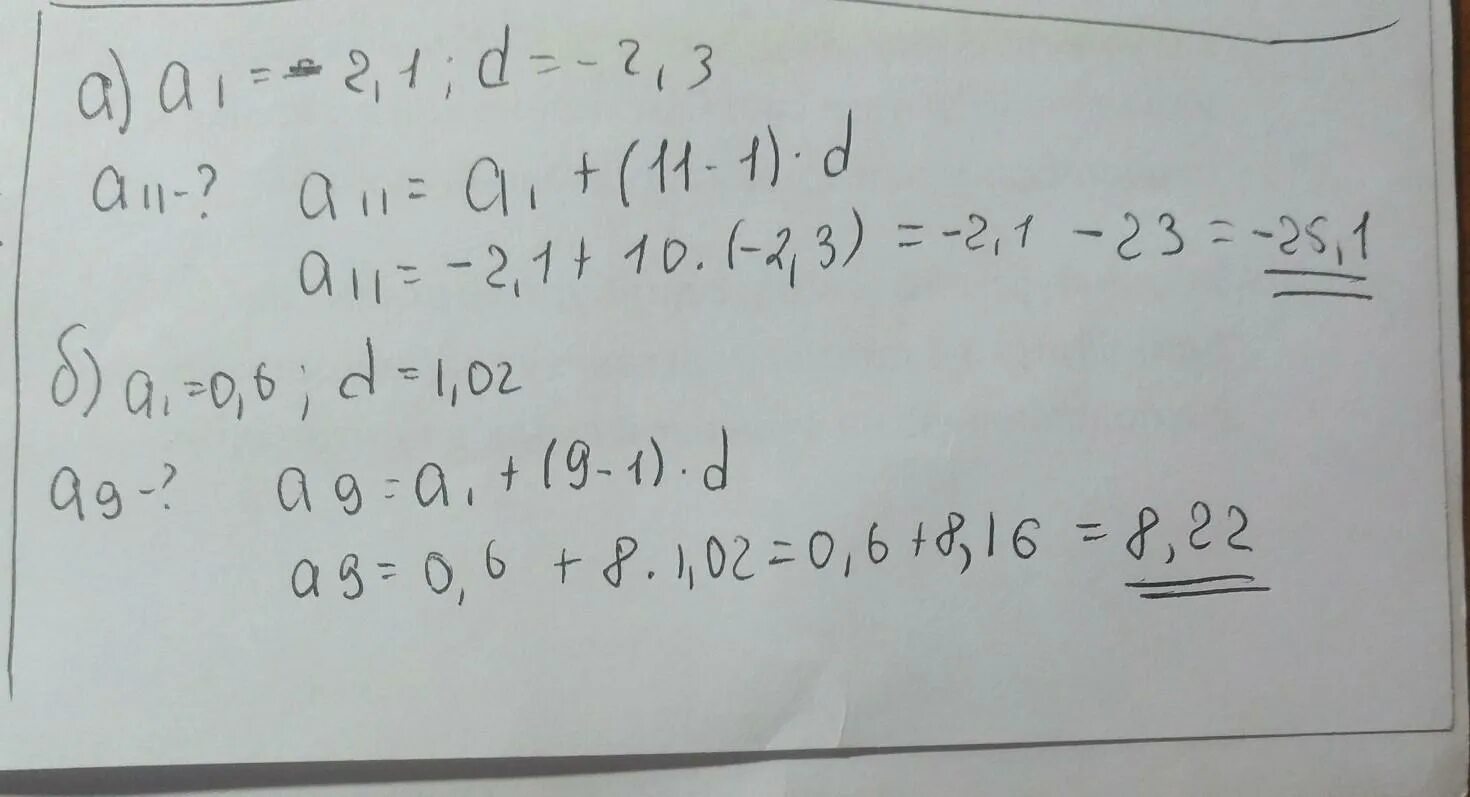 а) a₁ = -2,1; d = -2,3
a₁₁-? a₁₁ = a₁ + (11-1)·d
a₁₁ = -2,1 + 10·(-2,3) = -2,1 - 23 = -25,1
б) a₁ = 0,6; d = 1,02
a₉-? a₉ = a₁ + (9-1)·d
a₉ = 0,6 + 8·1,02 = 0,6 + 8,16 = 8,22